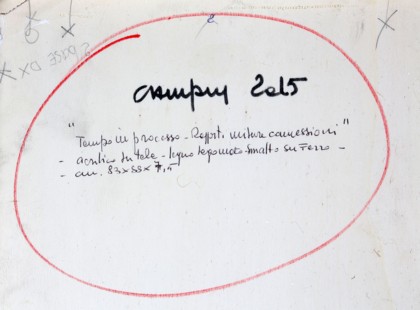 2
2 BASE DX
Campus 2015
"Tempo in processo - Rapporti misura connessioni"
- acrilico su tela - legno sagomato smalto su ferro -
- cm. 83x53x7,5